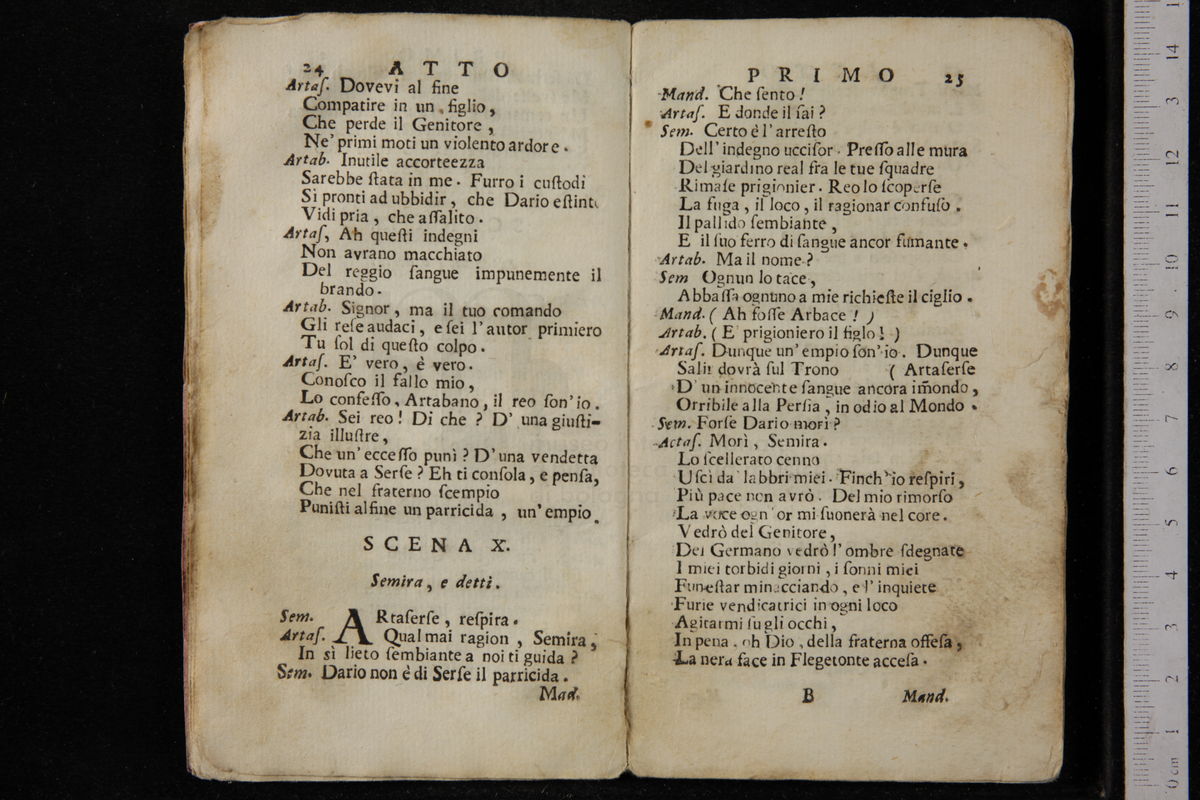 24 ATTO
Artaſ. Dovevi al fine
Compatire in un figlio,
Che perde il Genitore,
Ne' primi moti un violento ardore.
Artab. Inutile accorteezza
Sarebbe ſtata in me. Furro i cuſtodi
Si pronti ad ubbidir, che Dario eſtint
Vidi pria, che aſſalito.
Artaſ, Ah queſti indegni
Non avrano macchiato
Del reggio ſangue impunemente il
brando.
Artab. Signor, ma il tuo comando
Gli reſe audaci, e ſei l'autor primiero
Tu ſol di queſto colpo.
Artaſ. E' vero, è vero.
Conoſco il fallo mio,
Lo confeſſo, Artabano, il reo ſon'io.
Artab. Sei reo! Di che? D' una giuſti-
zia illuſtre,
Che un'ecceſſo punì? D'una vendetta
Dovuta a Serſe? Eh ti conſola, e penſa,
Che nel fraterno ſcempio
Puniſti alfine un parricida, un'empio.
SCENA X.
Semira, e detti.
Sem. ARtaſerſe, reſpira.
Artaſ. Qual mai ragion, Semira,
In sì lieto ſembiante a noi ti guida?
Sem. Dario non è di Serſe il parricida.
Mad.
PRIMO 25
Mand. Che ſento!
Artaſ. E donde il ſai?
Sem. Certo è l'arreſto
Dell'indegno ucciſor. Preſſo alle mura
Del giardino real fra le tue ſquadre
Rimaſe prigionier. Reo lo ſcoperſe
La fuga, il loco, il ragionar confuſo.
Il pallido ſembiante,
E il ſuo ferro di ſangue ancor fumante.
Artab. Ma il nome?
Sem Ognun lo tace,
Abbaſſa ognuno a mie richieſte il ciglio.
Mand. ( Ah foſſe Arbace! )
Artab. ( E' prigioniero il figlo! )
Artaſ. Dunque un' empio ſon'io. Dunque
Salir dovrà ſul Trono ( Artaſerſe
D' un innocente ſangue ancora im̃ondo,
Orribile alla Perſia, in odio al Mondo.
Sem. Forſe Dario morì?
Actaſ. Morì, Semira.
Lo ſcellerato cenno
Uſcì da' labbri miei. Finch'io reſpiri,
Più pace non avrò. Del mio rimorſo
La voce ogn'or mi ſuonerà nel core.
Vedrò del Genitore,
Del Germano vedrò l'ombre ſdegnate
I miei torbidi giorni, i ſonni miei
Funeſtar minacciando, e l'inquiete
Furie vendicatrici in ogni loco
Agitarmi ſu gli occhi,
In pena, oh Dio, della fraterna offeſa,
La nera face in Flegetonte acceſa.
B Mand.